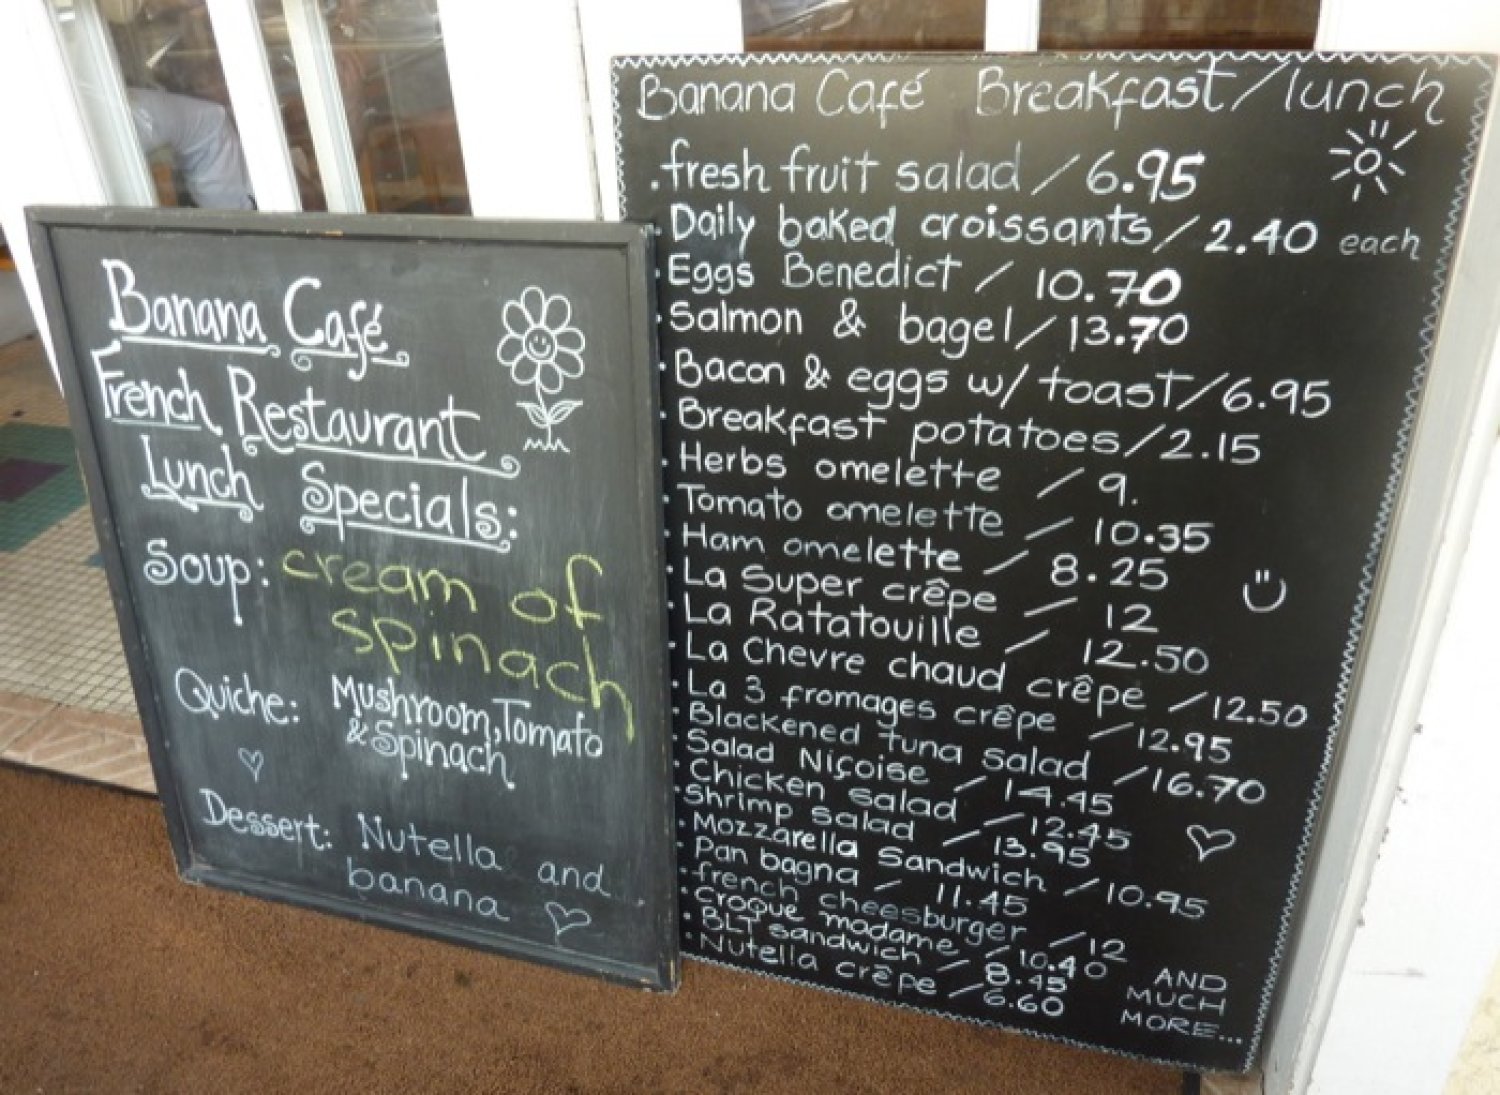 Banana Café
French Restaurant
Lunch Specials:
Soup: cream of
spinach
Quiche: Mushroom, Tomato
& Spinach
Dessert: Nutella and
banana
Banana Café Breakfast/lunch
. fresh fruit salad / 6.95
. Daily baked croissants / 2.40 each
. Eggs Benedict / 10.70
. Salmon & bagel / 13.70
. Bacon & eggs w/ toast / 6.95
. Breakfast potatoes / 2.15
. Herbs omelette / 9.
. Tomato omelette / 10.35
. Ham omelette / 8.25
. La Super crêpe / 12
. La Ratatouille / 12.50
. La Chevre chaud crêpe / 12.50
. La 3 fromages crêpe / 12.95
. Blackened tuna salad / 16.70
. Salad Niçoise / 14.45
. Chicken salad / 12.45
. Shrimp salad / 13.95
. Mozzarella Sandwich / 10.95
. Pan bagna / 11.45
. french cheesburger / 12
. Croque madame / 10.40
. BLT sandwich / 8.45
. Nutella crêpe / 6.60
AND
MUCH
MORE...